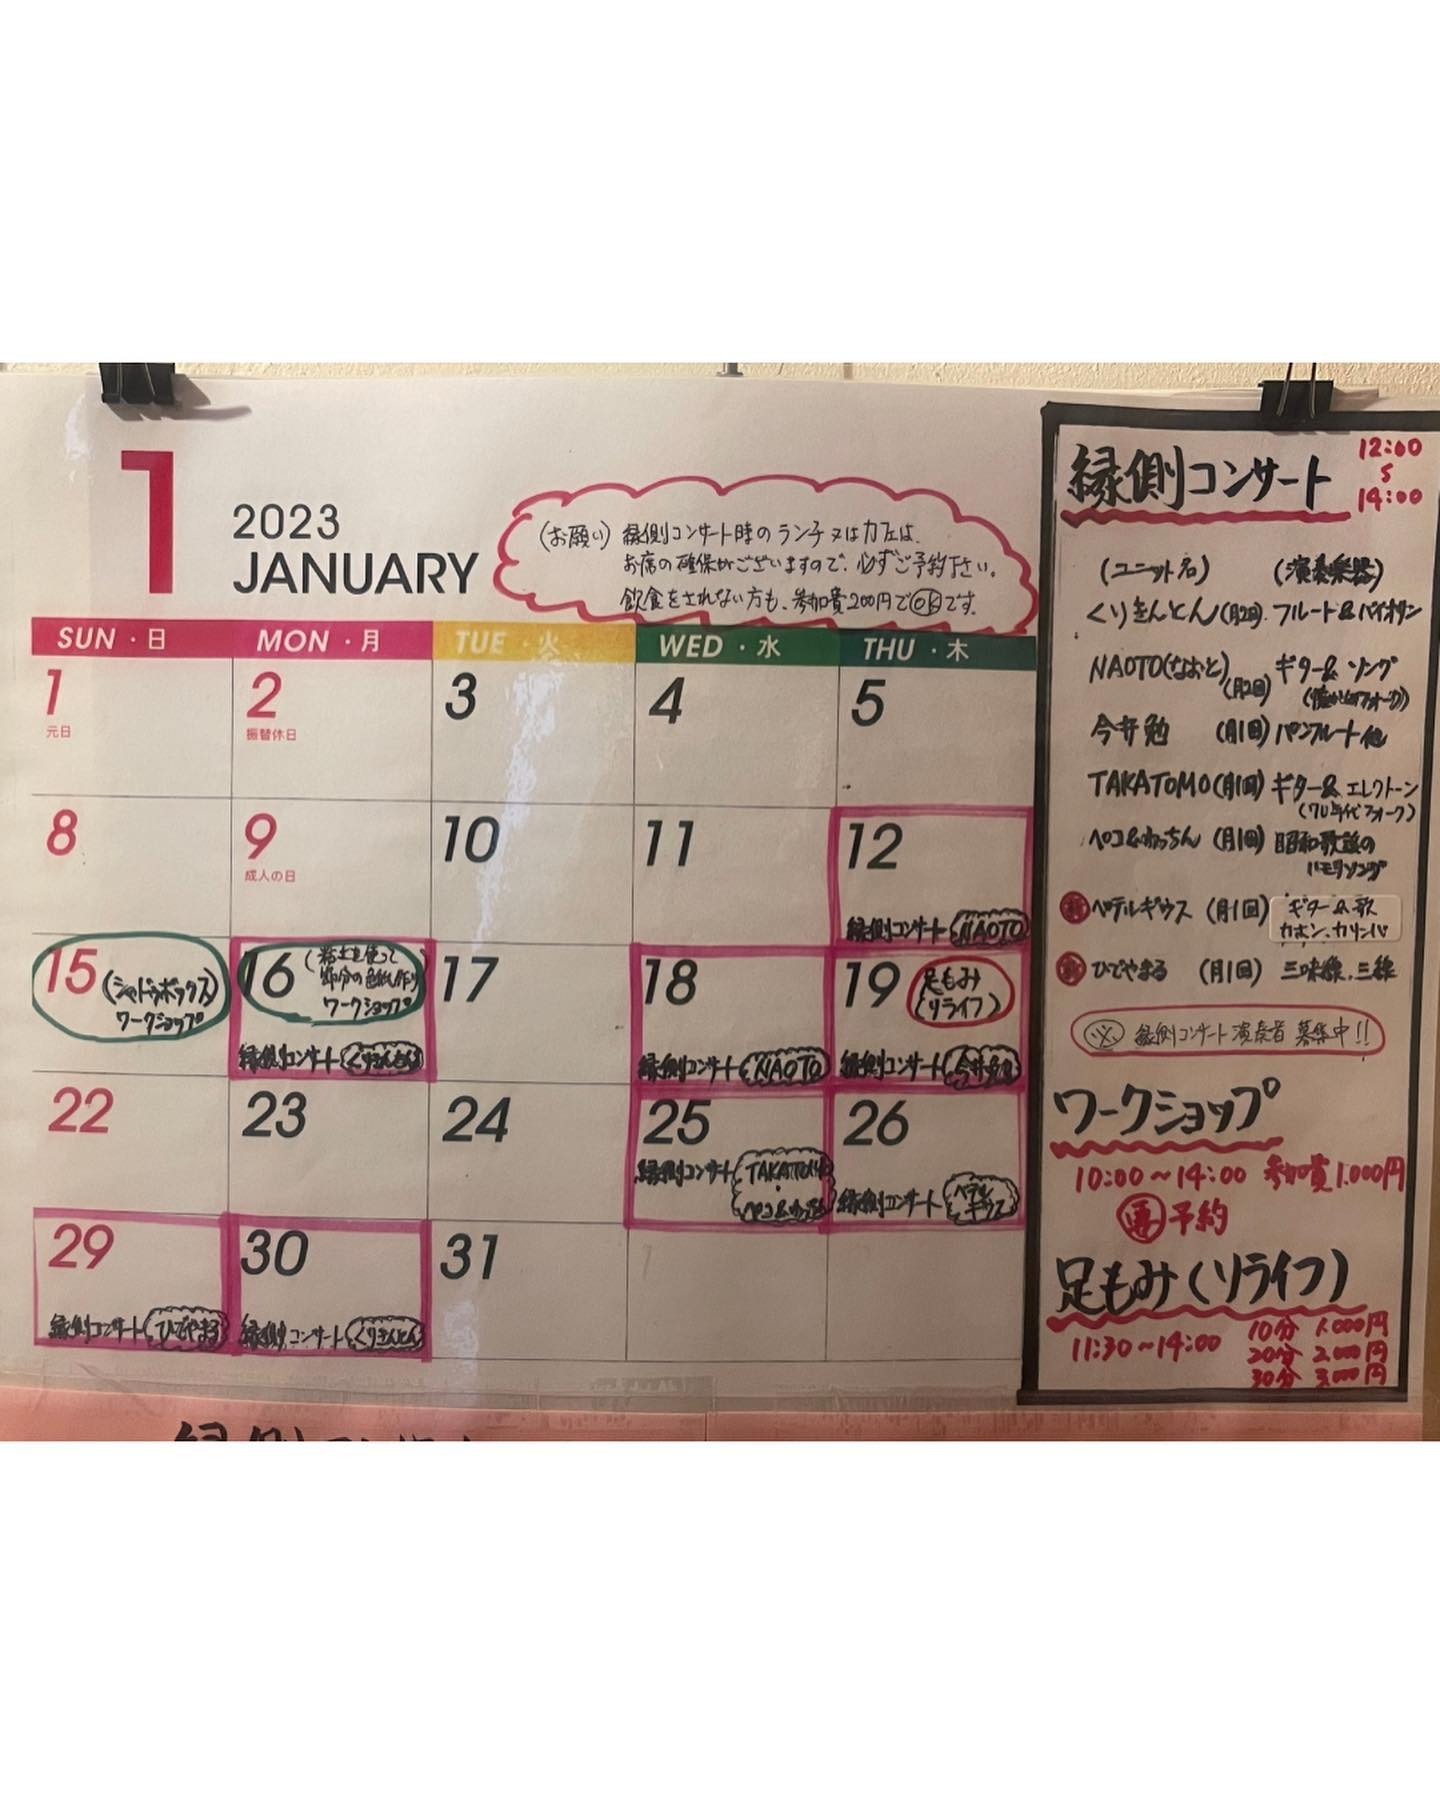 1
2023
JANUARY
(お願い) 縁側コンサート時のランチ又はカフェは、
お席の確保がございますので、必ずご予約下さい。
飲食をされない方も、参加費200円でOKです。
SUN・日 MON・月 TUE・火 WED・水 THU・木
1 2 3 4 5
元日 振替休日
8 9 10 11 12
成人の日
縁側コンサート NAOTO
15 (シャドウボックス) ワークショップ
16 (粘土を使って節分の色紙作り) ワークショップ
縁側コンサート くりきんとん
17
18
縁側コンサート NAOTO
19 足もみ (リライフ)
縁側コンサート 今井勉
22 23 24
25
縁側コンサート TAKATOMO・ペコ&わっちん
26
縁側コンサート ベテルギウス
29
縁側コンサート ひでやまる
30
縁側コンサート くりきんとん
31
縁側コンサート 12:00〜14:00
(ユニット名) (演奏楽器)
くりきんとん(月2回) フルート&バイオリン
NAOTO(なおと)(月2回) ギター&ソング
(懐かしのフォーク)
今井勉 (月1回) パンフルート他
TAKATOMO(月1回) ギター&エレクトーン
(70年代フォーク)
ペコ&わっちん (月1回) 昭和歌謡の
ハモリソング
新 ベテルギウス (月1回) ギター&歌
カホン、カリンバ
新 ひでやまる (月1回) 三味線、三線
縁側コンサート演奏者 募集中!!
ワークショップ
10:00〜14:00 参加費1.000円
要予約
足もみ(リライフ)
11:30〜14:00 10分 1.000円
20分 2.000円
30分 3.000円
縁側コンサート